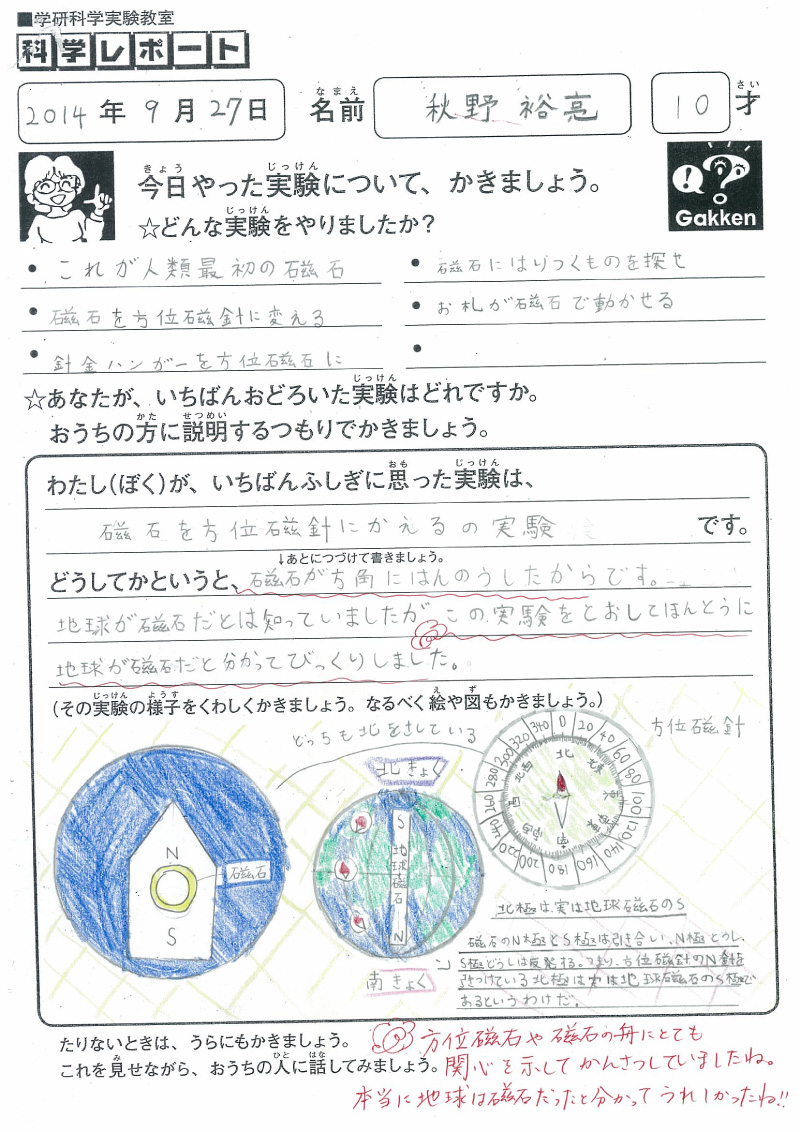 ■学研科学実験教室
科学レポート
2014年9月27日
名前
なまえ
秋野 裕亮
10才
さい
きょう
じっけん
今日やった実験について、かきましょう。
じっけん
☆どんな実験をやりましたか？
Gakken
・これが人類最初の磁石
・磁石にはりつくものを探せ
・磁石を方位磁針に変える
・お札が磁石で動かせる
・針金ハンガーを方位磁石に
・
じっけん
☆あなたが、いちばんおどろいた実験はどれですか。
かた せつめい
おうちの方に説明するつもりでかきましょう。
おも じっけん
わたし(ぼく)が、いちばんふしぎに思った実験は、
磁石を方位磁針にかえるの実験 です。
↓あとにつづけて書きましょう。
どうしてかというと、磁石が方角にはんのうしたからです。
地球が磁石だとは知っていましたがこの実験をとおしてほんとうに
地球が磁石だと分かってびっくりしました。
じっけん ようす え ず
(その実験の様子をくわしくかきましょう。なるべく絵や図もかきましょう。)
どっちも北をさしている
方位磁針
北きょく
N
磁石
S
S
地球磁石
N
南きょく
0 20 40 60 80 100 120 140 160 180 200 220 240 260 280 300 320 340
北
北東
南東
南
南西
西
北西
北極は、実は地球磁石のS
磁石のN極とS極は引き合い、N極どうし、
S極どうしは反発する。つまり、方位磁針のN針を
引きつけている北極は実は地球磁石のS極で
あるというわけだ。
たりないときは、うらにもかきましょう。
み ひと はな
これを見せながら、おうちの人に話してみましょう。
方位磁石や磁石の舟にとても
関心を示してかんさつしていましたね。
本当に地球は磁石だったと分かってうれしかったね!!